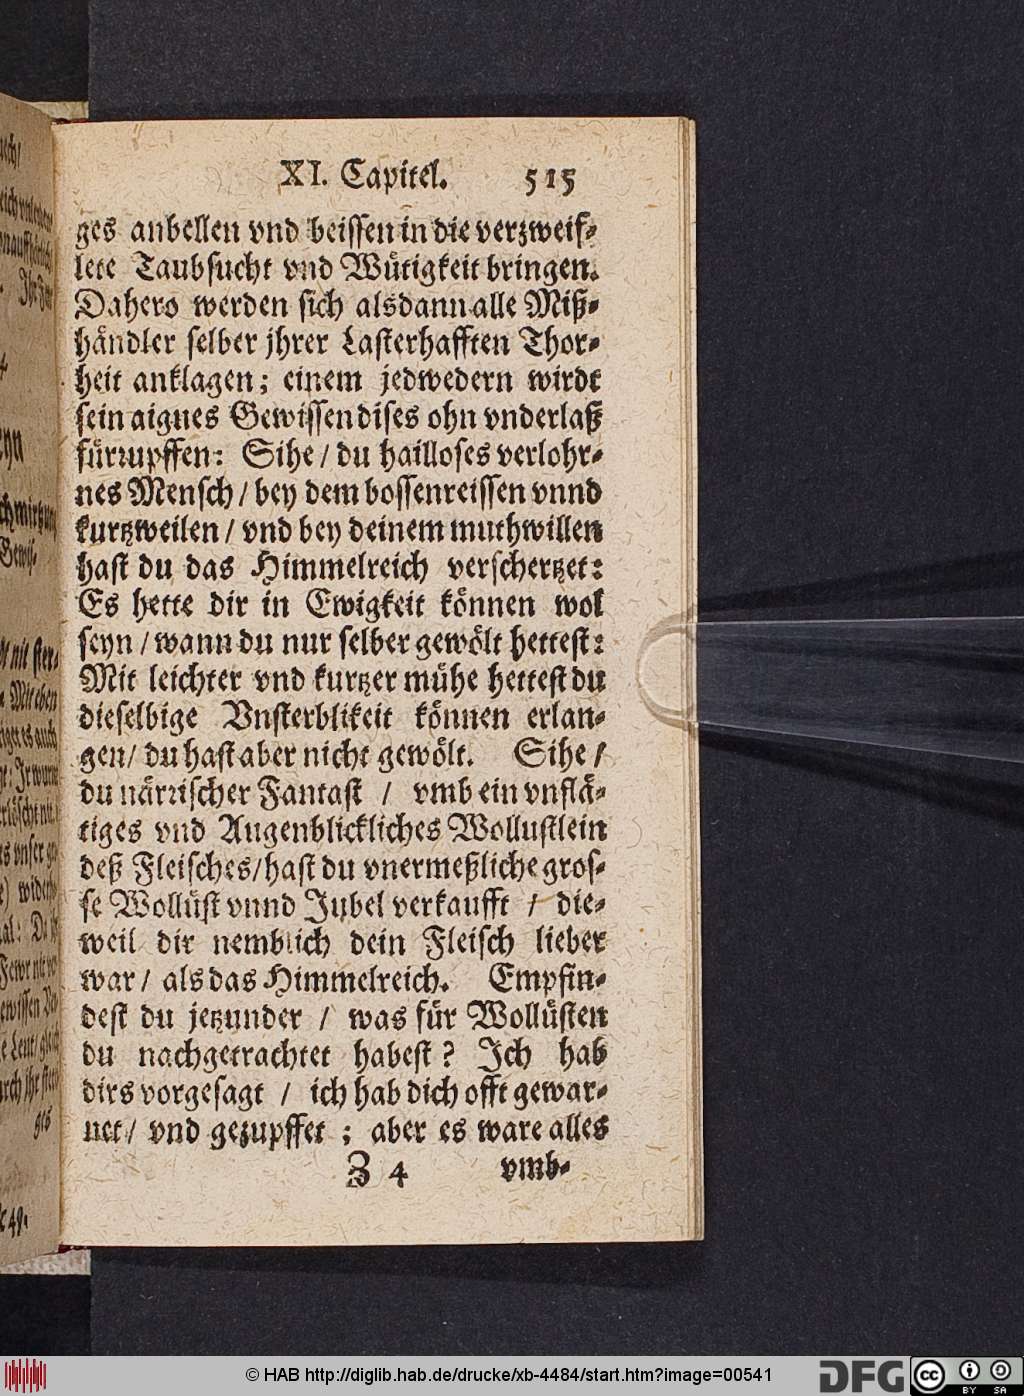 XI. Capitel. 515
ges anbellen vnd beissen in die verzweif-
lete Taubsucht vnd Wütigkeit bringen.
Dahero werden sich alsdann alle Miß-
händler selber jhrer Lasterhafften Thor-
heit anklagen; einem jedwedern wirdt
sein aignes Gewissen dises ohn vnderlaß
fürrupffen: Sihe / du hailloses verlohr-
nes Mensch / bey dem bossenreissen vnnd
kurtzweilen / vnd bey deinem muthwillen
hast du das Himmelreich verschertzet:
Es hette dir in Ewigkeit können wol
seyn / wann du nur selber gewölt hettest:
Mit leichter vnd kurtzer mühe hettest du
dieselbige Vnsterblikeit können erlan-
gen / du hast aber nicht gewölt. Sihe /
du närrischer Fantast / vmb ein vnflä-
tiges vnd Augenblickliches Wollustlein
deß Fleisches / hast du vnermeßliche gros-
se Wollüst vnnd Jubel verkaufft / die-
weil dir nemblich dein Fleisch lieber
war / als das Himmelreich. Empfin-
dest du jetzunder / was für Wollüsten
du nachgetrachtet habest? Ich hab
dirs vorgesagt / ich hab dich offt gewar-
net / vnd gezupffet ; aber es ware alles
Z 4 vmb-
© HAB http://diglib.hab.de/drucke/xb-4484/start.htm?image=00541
DFG
cc BY SA